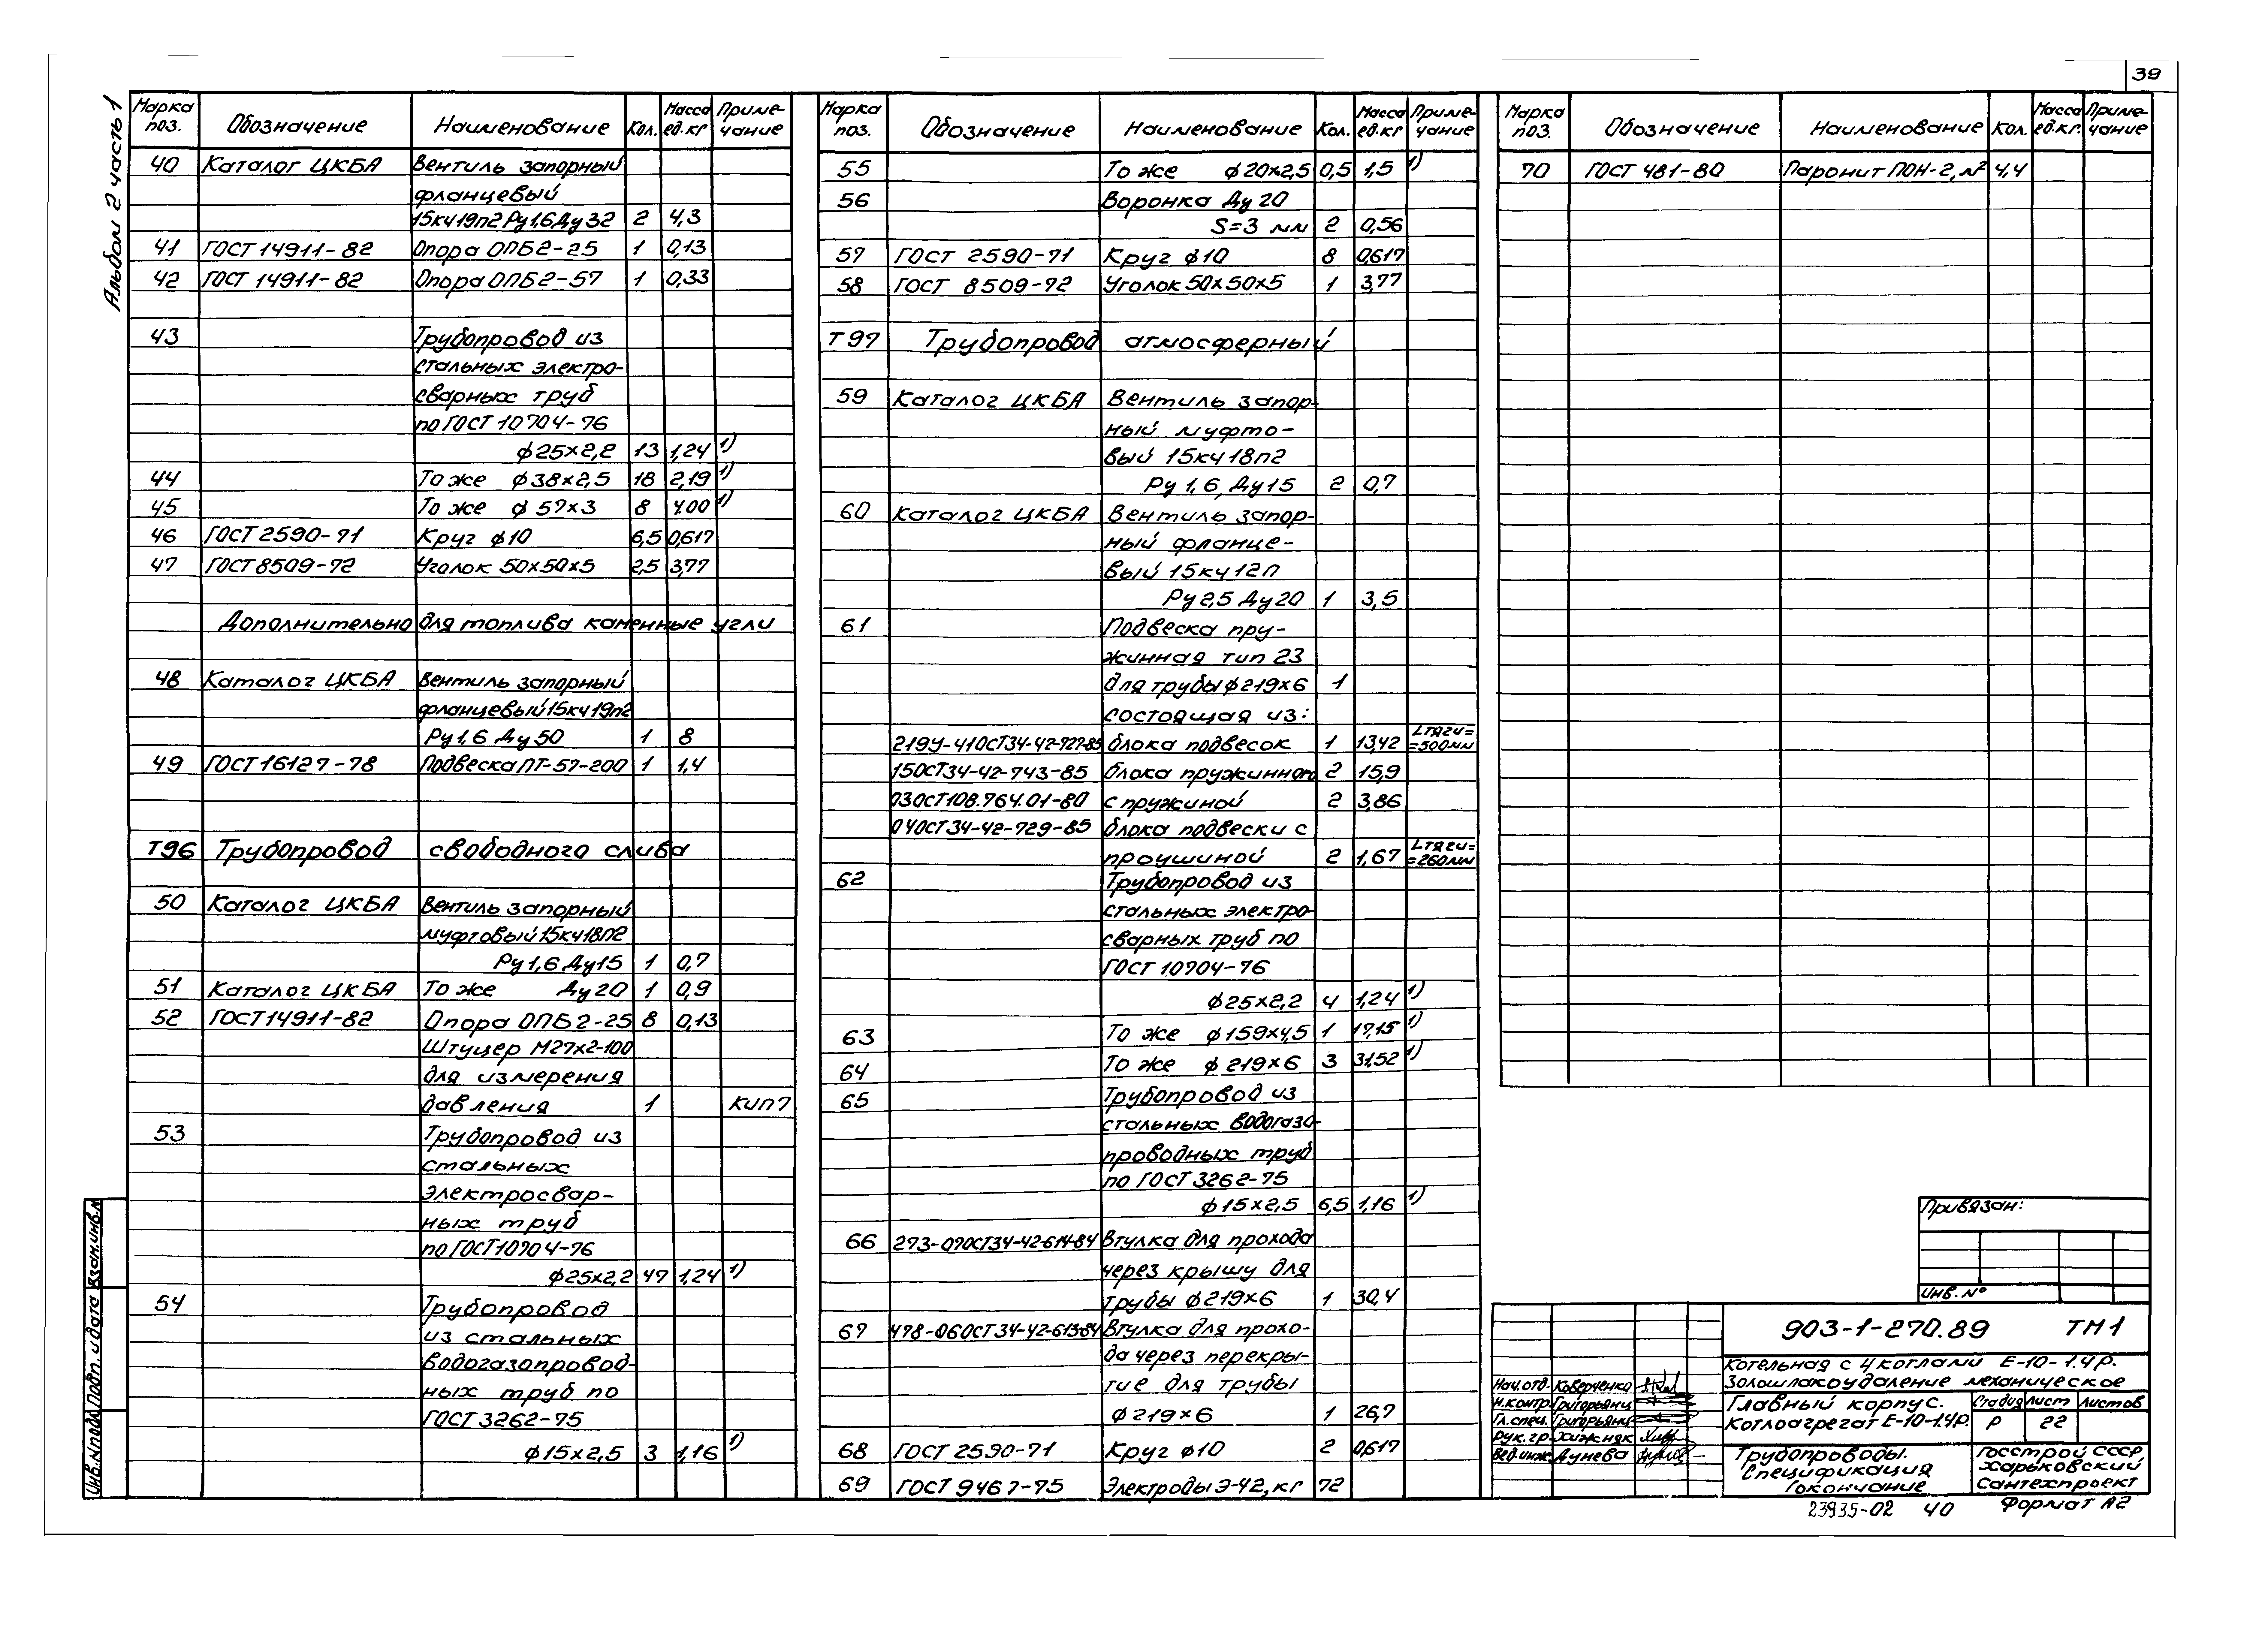 39
Альбом 2 часть 1
Марка поз. Обозначение Наименование Кол. Масса ед.кг Приме-чание
40 Каталог ЦКБА Вентиль запорный
фланцевый
15кч19п2 Ру1,6 Ду32 2 4,3
41 ГОСТ 14911-82 Опора ОПБ2-25 1 0,13
42 ГОСТ 14911-82 Опора ОПБ2-57 1 0,33
43 Трубопровод из
стальных электро-
сварных труб
по ГОСТ 10704-76
ф25×2,2 13 1,24 1)
44 То же ф38×2,5 18 2,19 1)
45 То же ф57×3 8 4.00 1)
46 ГОСТ 2590-71 Круг ф10 6,5 0,617
47 ГОСТ 8509-72 Уголок 50×50×5 2,5 3,77
Дополнительно для топлива каменные угли
48 Каталог ЦКБА Вентиль запорный
фланцевый 15кч19п2
Ру1,6 Ду50 1 8
49 ГОСТ 16127-78 Подвеска ПТ-57-200 1 1,4
Т96 Трубопровод свободного слива
50 Каталог ЦКБА Вентиль запорный
муфтовый 15кч18п2
Ру1,6 Ду15 1 0,7
51 Каталог ЦКБА То же Ду20 1 0,9
52 ГОСТ 14911-82 Опора ОПБ2-25 8 0,13
Штуцер М27×2-100
для измерения
давления 1 КИП7
53 Трубопровод из
стальных
электросвар-
ных труб
по ГОСТ 10704-76
ф25×2,2 47 1,24 1)
54 Трубопровод
из стальных
водогазопровод-
ных труб по
ГОСТ 3262-75
ф15×2,5 3 1,16 1)
Марка поз. Обозначение Наименование Кол. Масса ед.кг Приме-чание
55 То же ф20×2,5 0,5 1,5 1)
56 Воронка Ду20
S=3 мм 2 0,56
57 ГОСТ 2590-71 Круг ф10 8 0,617
58 ГОСТ 8509-72 Уголок 50×50×5 1 3,77
Т97 Трубопровод атмосферный
59 Каталог ЦКБА Вентиль запор-
ный муфто-
вый 15кч18п2
Ру1,6, Ду15 2 0,7
60 Каталог ЦКБА Вентиль запор-
ный фланце-
вый 15кч12п
Ру2,5 Ду20 1 3,5
61 Подвеска пру-
жинная тип 23
для трубы ф219×6 1
состоящая из:
219У-410СТ34-42-727-85 блока подвесок 1 13,42 Lтяги=
=500мм
150СТ34-42-743-85 блока пружинного 2 15,9
030СТ108.764.01-80 с пружиной 2 3,86
040СТ34-42-729-85 блока подвески с
проушиной 2 1,67 Lтяги=
=260мм
62 Трубопровод из
стальных электро-
сварных труб по
ГОСТ 10704-76
ф25×2,2 4 1,24 1)
63 То же ф159×4,5 1 17,15 1)
64 То же ф219×6 3 31,52 1)
65 Трубопровод из
стальных водогазо-
проводных труб
по ГОСТ 3262-75
ф15×2,5 6,5 1,16 1)
66 273-070СТ34-42-614-84 Втулка для прохода
через крышу для
трубы ф219×6 1 30,4
67 478-060СТ34-42-613-84 Втулка для прохо-
да через перекры-
тие для трубы
ф219×6 1 26,7
68 ГОСТ 2590-71 Круг ф10 2 0,617
69 ГОСТ 9467-75 Электроды Э-42, кг 72
Марка поз. Обозначение Наименование Кол. Масса ед.кг. Приме-чание
70 ГОСТ 481-80 Паронит ПОН-2, м² 4,4
Привязан:
Инв. №
903-1-270.89 ТМ1
Котельная с 4 котлами Е-10-1.4Р.
Золошлакоудаление механическое
Нач.отд. Коверченко
Н.контр. Григорьянц
Гл.спец. Григорьянц
Рук.гр. Хижняк
Вед.инж. Дунева
Главный корпус.
Котлоагрегат Е-10-1.4Р.
Стадия Лист Листов
Р 22
Трубопроводы.
Спецификация
(окончание
Госстрой СССР
Харьковский
Сантехпроект
23935-02 40 Формат А2
Инв.№подл. Подп. и дата Взам.инв.№